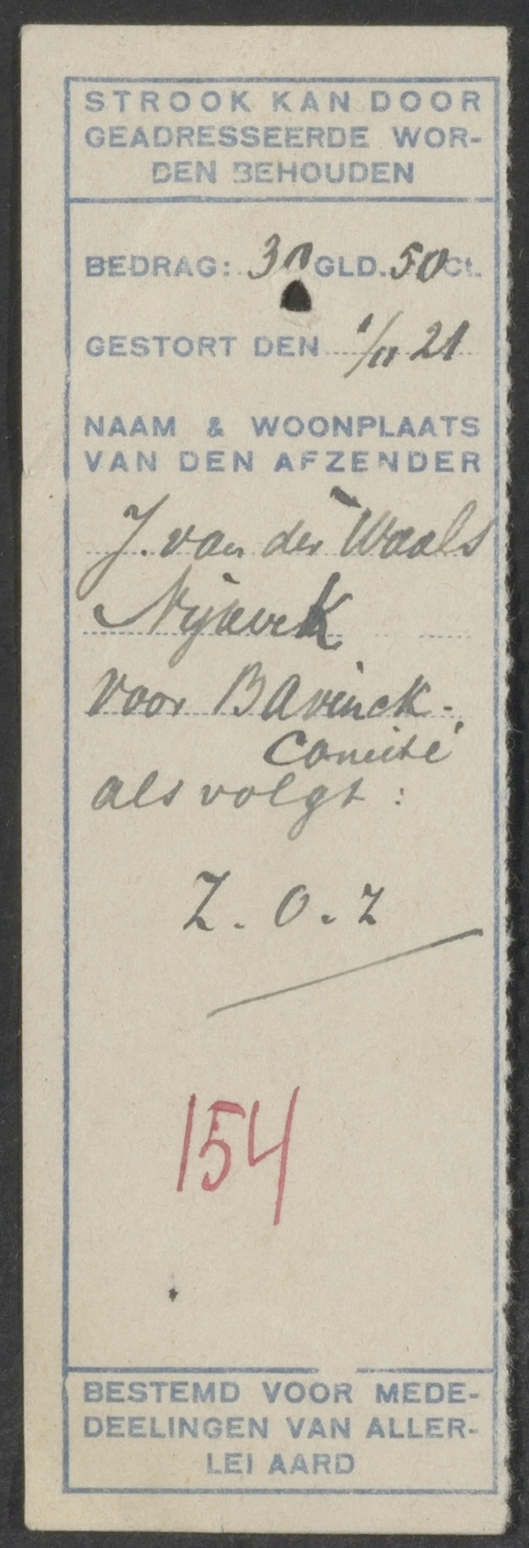 STROOK KAN DOOR
GEADRESSEERDE WOR-
DEN BEHOUDEN
BEDRAG: 30 GLD. 50 Ct.
GESTORT DEN 1/11 21
NAAM & WOONPLAATS
VAN DEN AFZENDER
J. van der Waals
Nijkerk
voor Bavinck-
Comité
als volgt:
Z.O.Z
154
BESTEMD VOOR MEDE-
DEELINGEN VAN ALLER-
LEI AARD